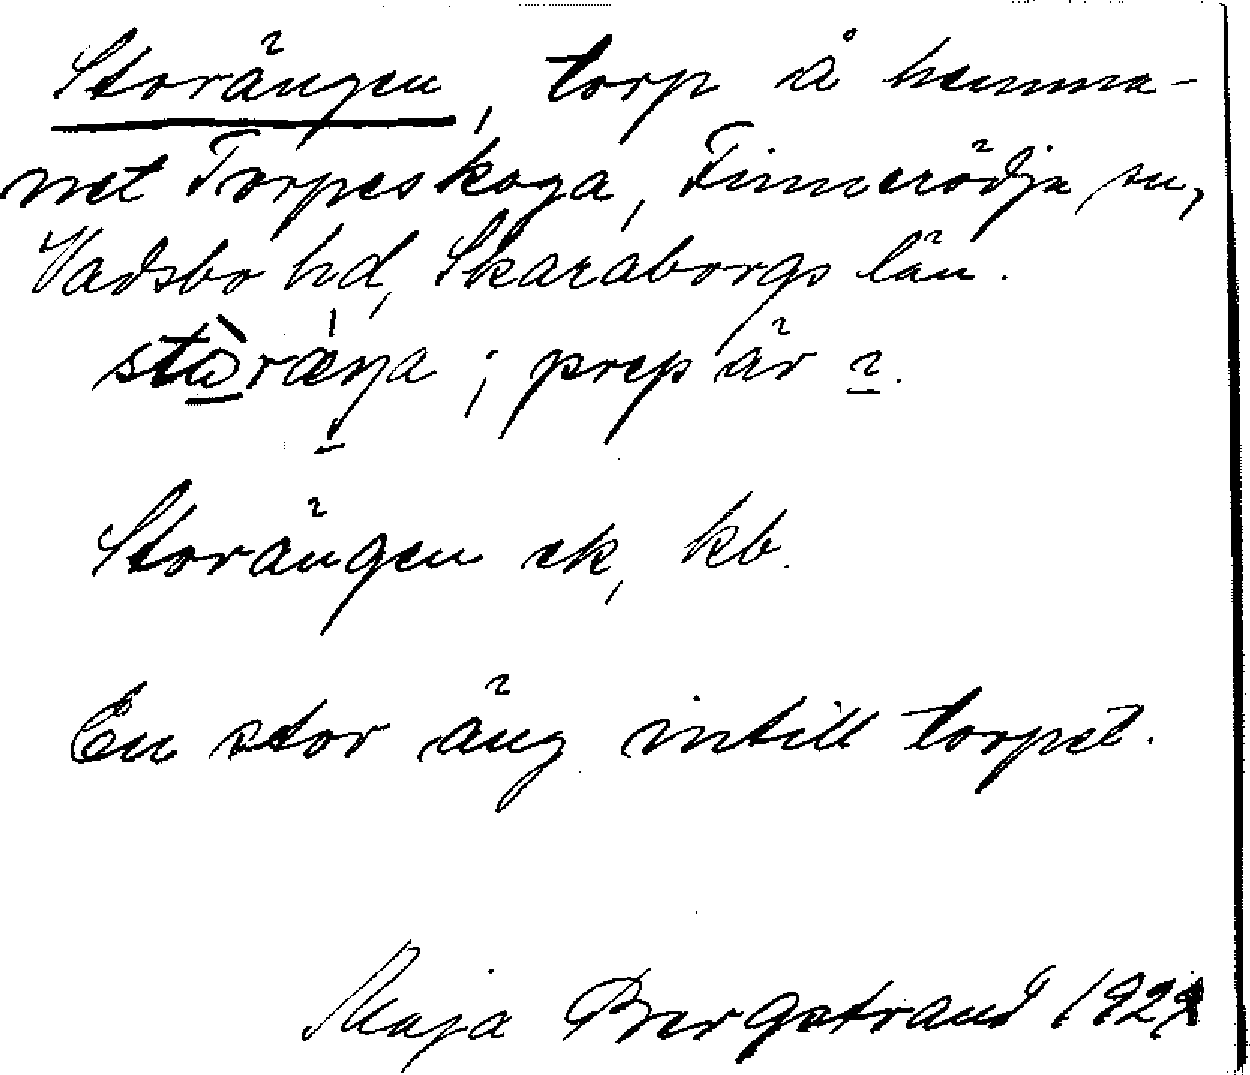 Storängen, torp å hemma-
net Torpeskoga, Finnerödja sn,
Vadsbo hd, Skaraborgs län.
; prep är
Storängen ek, kb.
En stor äng intill torpet.
Maja Bergstrand